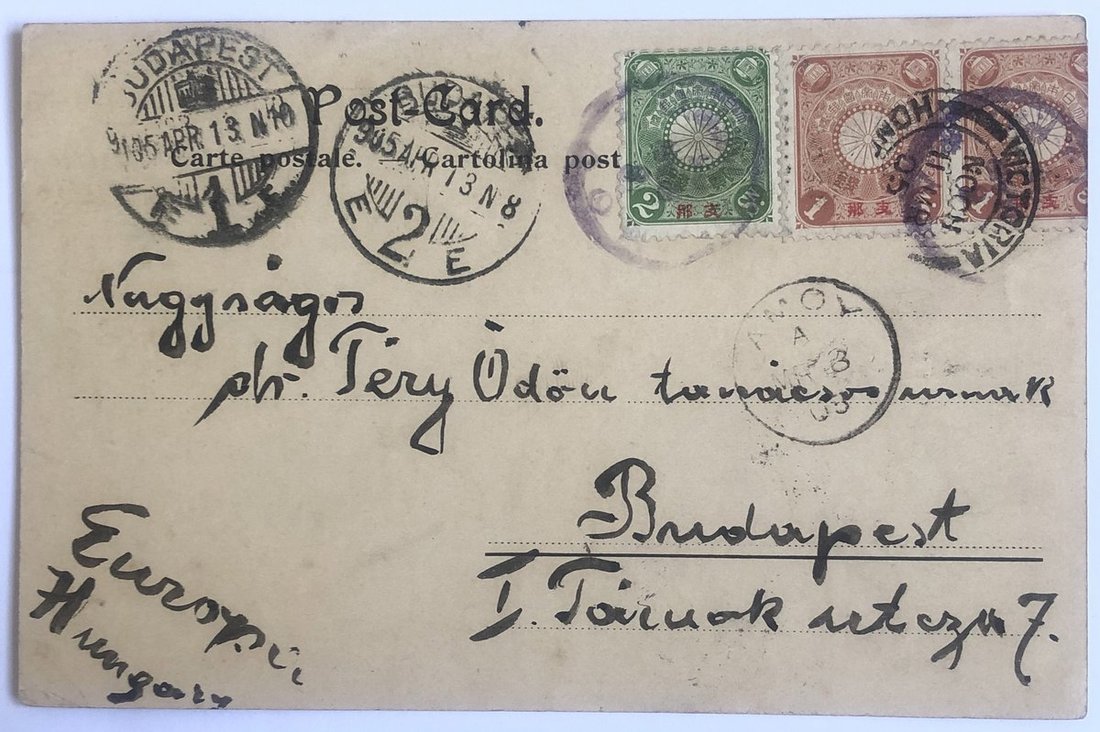 Post-Card.
Carte postale. — Cartolina post
BUDAPEST
905 APR 13 N 10
1
BUDAPEST
905 APR 13 N 8
E 2 E
2
支那
1
支那
1
支
VICTORIA
NOON
HONG
05
AMOY
A
MR 8
05
Nagyságos
dr. Téry Ödön tanácsos urnak
Budapest
I. Tárnok utcza 7.
Europa
Hungary